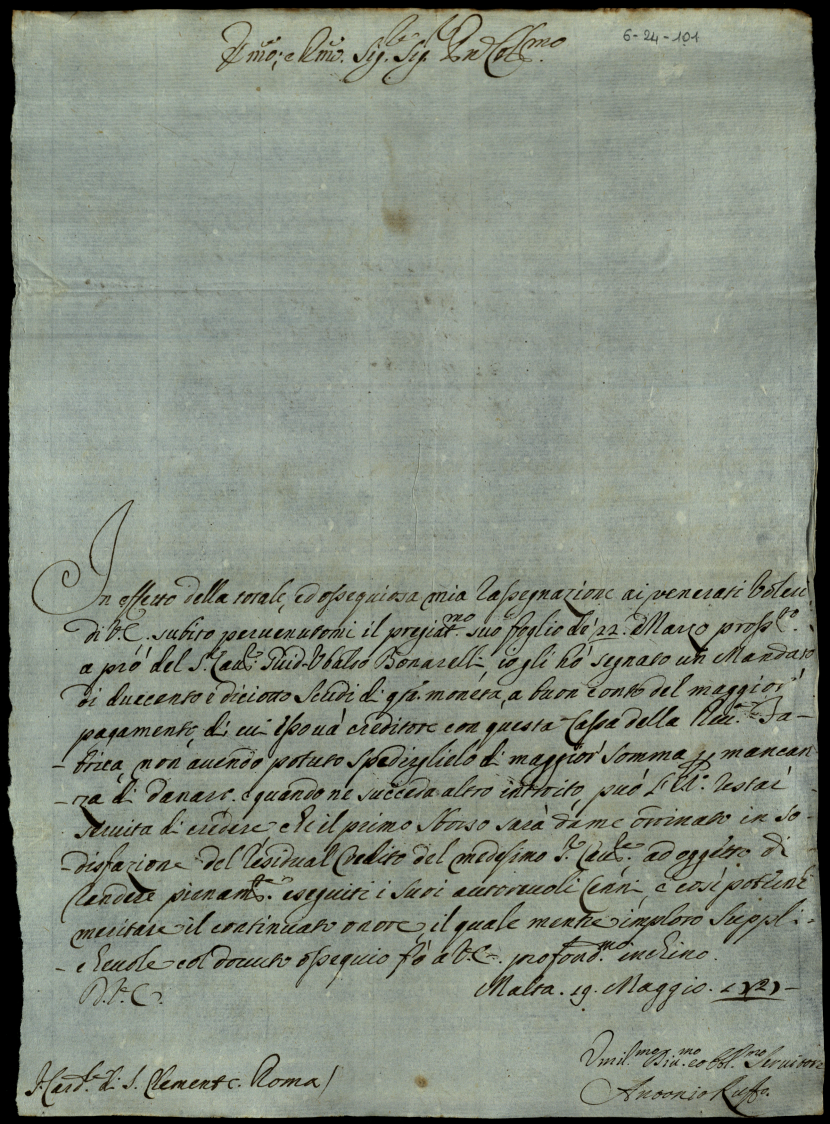 6-24-101
Em̄o, e Rm̄o. Sig.re Sig.r P̄ne Col.mo
In effetto della totale, ed ossequiosa mia rassegnazione ai venerati voleri
di V.E. subito pervenutomi il pregiat.mo suo foglio de' 22. Marzo pross.to
a pró del S.r Cau.re Guid-Ubaldo Bonarelli io gli hó segnato un Mandato
di duecento e diciotto Scudi di q̄sta moneta, a buon conto del maggior'
pagamento, di cui essová creditore con questa Cassa della Reu.da Fa-
-brica, non' auendo potuto spedirglielo di maggior' somma p̱ mancan
-za di danaro. e quando ne succeda altro introito, può l'E.V. restar'
seruita di credere che il primo sborso sarà dà me ordinato in so-
-disfazione del residual Credito del medesimo S.r Cau.re ad oggetto di
rendere pienam.te eseguiti i suoi autoreuoli Cenni, e così potermi
meritare il continuato onore, il quale mentre imploro suppli-
-cheuole col douuto ossequio fó a V.E. profond.mo inchino.
D.V.E. Malta. 19. Maggio. 1727
Umil.mo Diu.mo ed Obl.mo Seruitore
S.r Card.le di S. Clemente. Roma/
Antonio Ruffo.